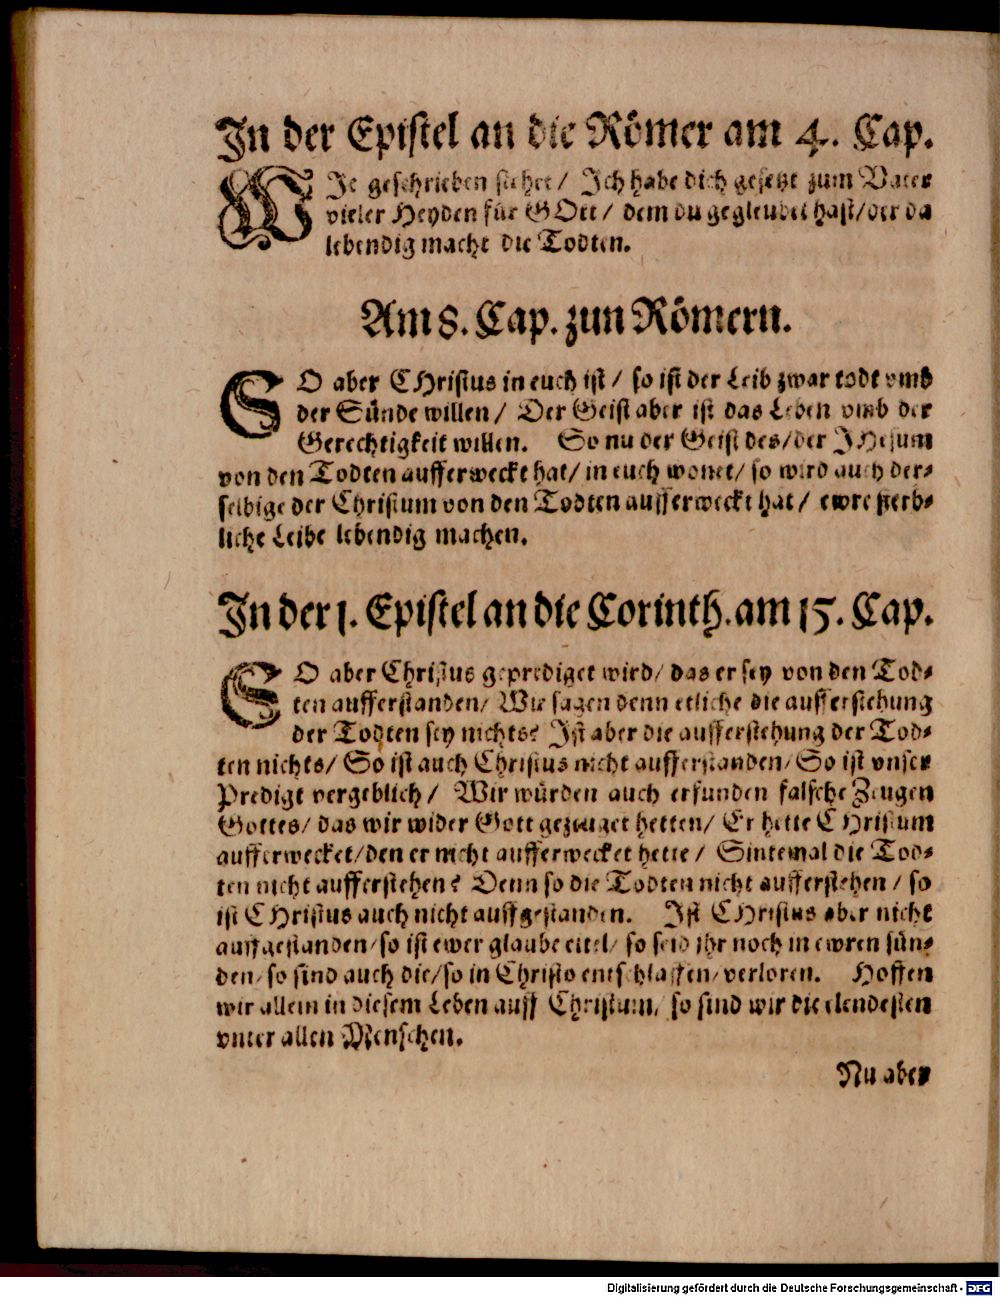 In der Epistel an die Römer am 4. Cap.
WIe geschrieben stehet / Ich habe dich gesetzt zum Vater
vieler Heyden für GOtt / dem du gegleubet hast / der da
lebendig macht die Todten.
Am 8. Cap. zun Römern.
SO aber CHristus in euch ist / so ist der Leib zwar todt vmb
der Sünde willen / Der Geist aber ist das Leben vmb der
Gerechtigkeit willen. So nu der Geist des / der JHesum
von den Todten aufferweckt hat / in euch wonet / so wird auch der-
selbige der Christum von den Todten aufferweckt hat / ewre sterb-
liche Leibe lebendig machen.
In der 1. Epistel an die Corinth. am 15. Cap.
SO aber Christus geprediget wird / das er sey von den Tod-
ten aufferstanden / Wie sagen denn etliche die aufferstehung
der Todten sey nichts? Ist aber die aufferstehung der Tod-
ten nichts / So ist auch Christus nicht aufferstanden / So ist vnser
Predigt vergeblich / Wir würden auch erfunden falsche Zeugen
Gottes / das wir wider Gott gezeuget hetten / Er hette CHristum
aufferwecket / den er nicht aufferwecket hette / Sintemal die Tod-
ten nicht aufferstehen? Denn so die Todten nicht aufferstehen / so
ist CHristus auch nicht auffgestanden. Ist CHristus aber nicht
auffgestanden / so ist ewer glaube eitel / so seid jhr noch in ewren sün-
den / so sind auch die / so in Christo entschlaffen / verloren. Hoffen
wir allein in diesem Leben auff Christum / so sind wir die elendesten
vnter allen Menschen.
Nu aber
Digitalisierung gefördert durch die Deutsche Forschungsgemeinschaft - DFG